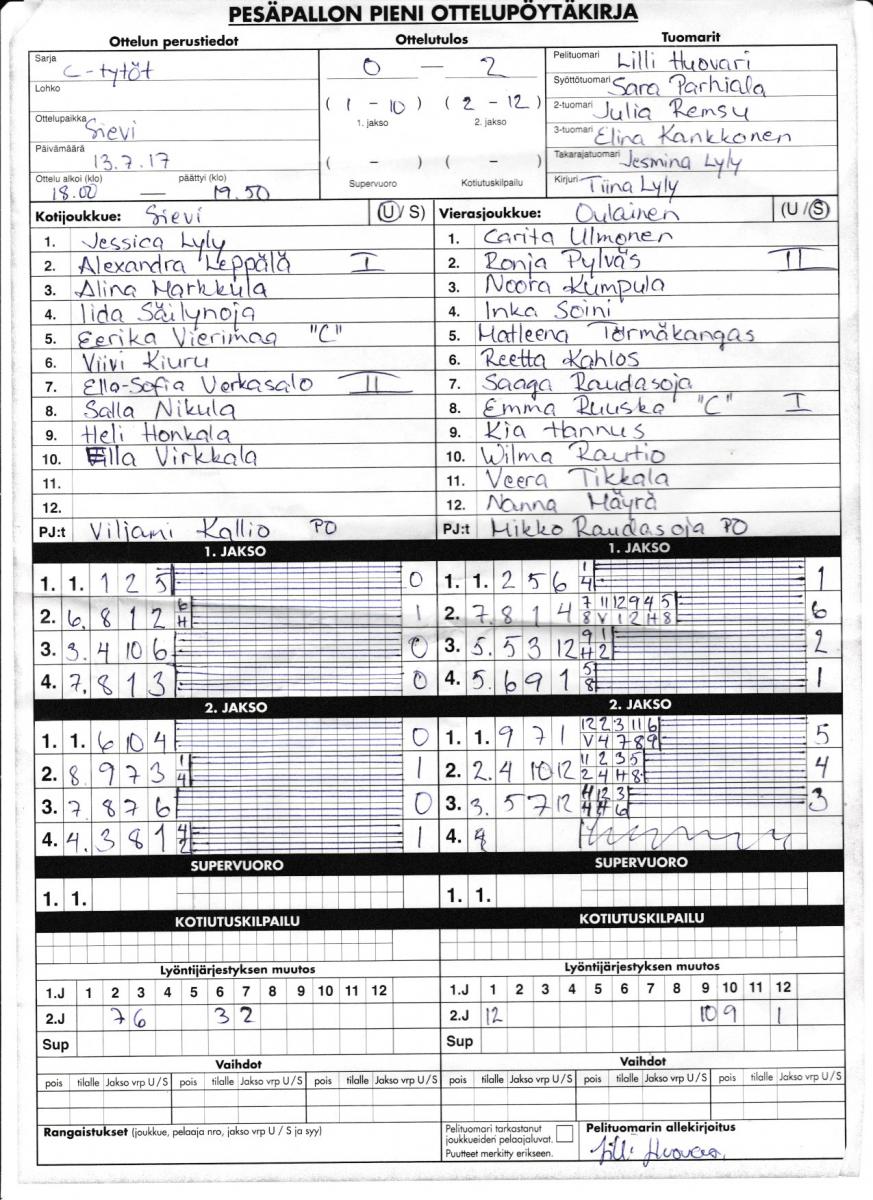 PESÄPALLON PIENI OTTELUPÖYTÄKIRJA
Ottelun perustiedot
Sarja
C-tytöt
Lohko
Ottelupaikka
Sievi
Päivämäärä
13.7.17
Ottelu alkoi (klo) päättyi (klo)
18.00 — 19.50
Ottelutulos
0 — 2
( 1 - 10 ) ( 2 - 12 )
1. jakso 2. jakso
( - ) ( - )
Supervuoro Kotiutuskilpailu
Tuomarit
Pelituomari Lilli Huovari
Syöttötuomari Sara Parhiala
2-tuomari Julia Remsu
3-tuomari Elina Kankkonen
Takarajatuomari Jesmina Lyly
Kirjuri Tiina Lyly
Kotijoukkue: Sievi (U/ S)
1. Jessica Lyly
2. Alexandra Leppälä I
3. Alina Markkula
4. Iida Säilynoja
5. Eerika Vierimaa "C"
6. Viivi Kiuru
7. Ella-Sofia Verkasalo II
8. Salla Nikula
9. Heli Honkala
10. Ella Virkkala
11.
12.
PJ:t Viljami Kallio PO
Vierasjoukkue: Oulainen (U /S)
1. Carita Ulmonen
2. Ronja Pylväs II
3. Noora Kumpula
4. Inka Soini
5. Matleena Törmäkangas
6. Reetta Kahlos
7. Saaga Raudasoja
8. Emma Ruuska "C" I
9. Kia Hannus
10. Wilma Rautio
11. Veera Tikkala
12. Nanna Mäyrä
PJ:t Mikko Raudasoja PO
1. JAKSO
1. 1. 1 2 5 0
2. 6. 8 1 2 6 1
H
3. 3. 4 10 6 0
4. 7. 8 1 3 0
2. JAKSO
1. 1. 6 10 4 0
2. 8. 9 7 3 1 1
4
3. 7. 8 7 6 0
4. 4. 3 8 1 4 1
2
SUPERVUORO
1. 1.
KOTIUTUSKILPAILU
1. JAKSO
1. 1. 2 5 6 1 1
4
2. 7. 8 1 4 7 11 12 9 4 5 6
8 V 1 2 H 8
3. 5. 5 3 12 9 1 2
H 2
4. 5. 6 9 1 5 1
8
2. JAKSO
1. 1. 9 7 1 12 2 3 11 6 5
V 4 7 8 9
2. 2. 4 10 12 11 2 3 5 4
2 4 H 8
3. 3. 5 7 12 12 3 3
6
4.
SUPERVUORO
1. 1.
KOTIUTUSKILPAILU
Lyöntijärjestyksen muutos
1.J 1 2 3 4 5 6 7 8 9 10 11 12
2.J 7 6 3 2
Sup
Vaihdot
pois tilalle Jakso vrp U / S pois tilalle Jakso vrp U / S pois tilalle Jakso vrp U / S
Lyöntijärjestyksen muutos
1.J 1 2 3 4 5 6 7 8 9 10 11 12
2.J 12 10 9 1
Sup
Vaihdot
pois tilalle Jakso vrp U / S pois tilalle Jakso vrp U / S pois tilalle Jakso vrp U / S
Rangaistukset (joukkue, pelaaja nro, jakso vrp U / S ja syy)
Pelituomari tarkastanut
joukkueiden pelaajaluvat.
Puutteet merkitty erikseen.
Pelituomarin allekirjoitus
Lilli Huovari